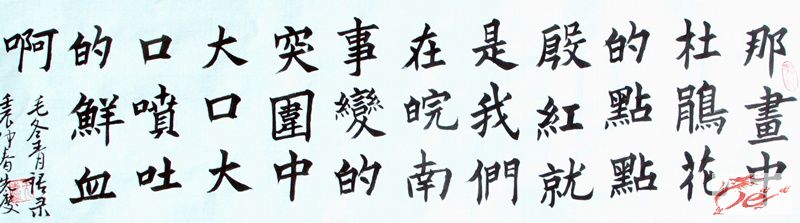 那畫中
杜鵑花
的點點
殷紅就
是我們
在皖南
事變的
突圍中
大口大
口噴吐
的鮮血
啊
毛冬青語录